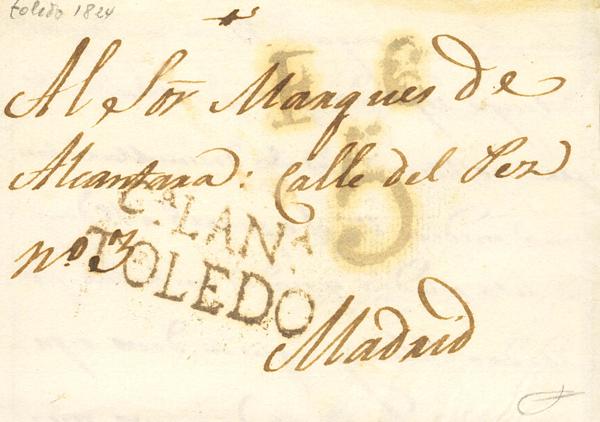 toledo 1824
Al Sor Marques de
Alcantara: Calle del Pez
no 3
CA LANA
TOLEDO
5
Madrid